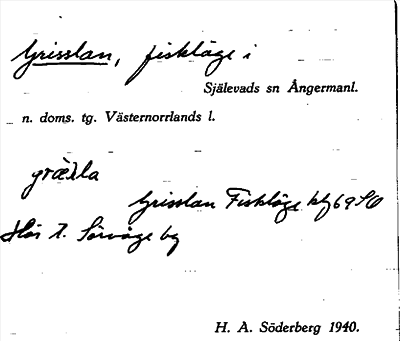 Grisslan, fiskläge i
Själevads sn Ångermanl.
n. doms. tg. Västernorrlands l.
Grisslan Fiskläge kbf 69 SO
Hör t. Sörvåge by
H. A. Söderberg 1940.